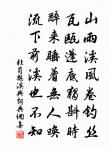 山雨溪風卷釣絲
瓦甌篷底獨斟時
醉來睡著無人喚
流下前溪也不知
杜荀鶴溪興詞典網書